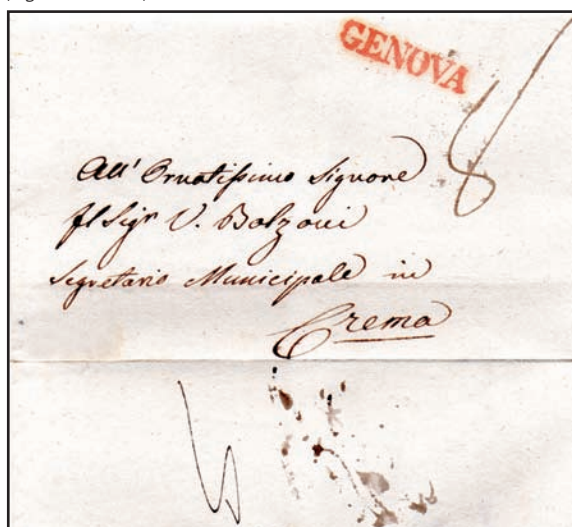 GENOVA
8
All' Ornatissimo Signore
Il Sigr V. Bolzoni
Segretario Municipale in
Crema